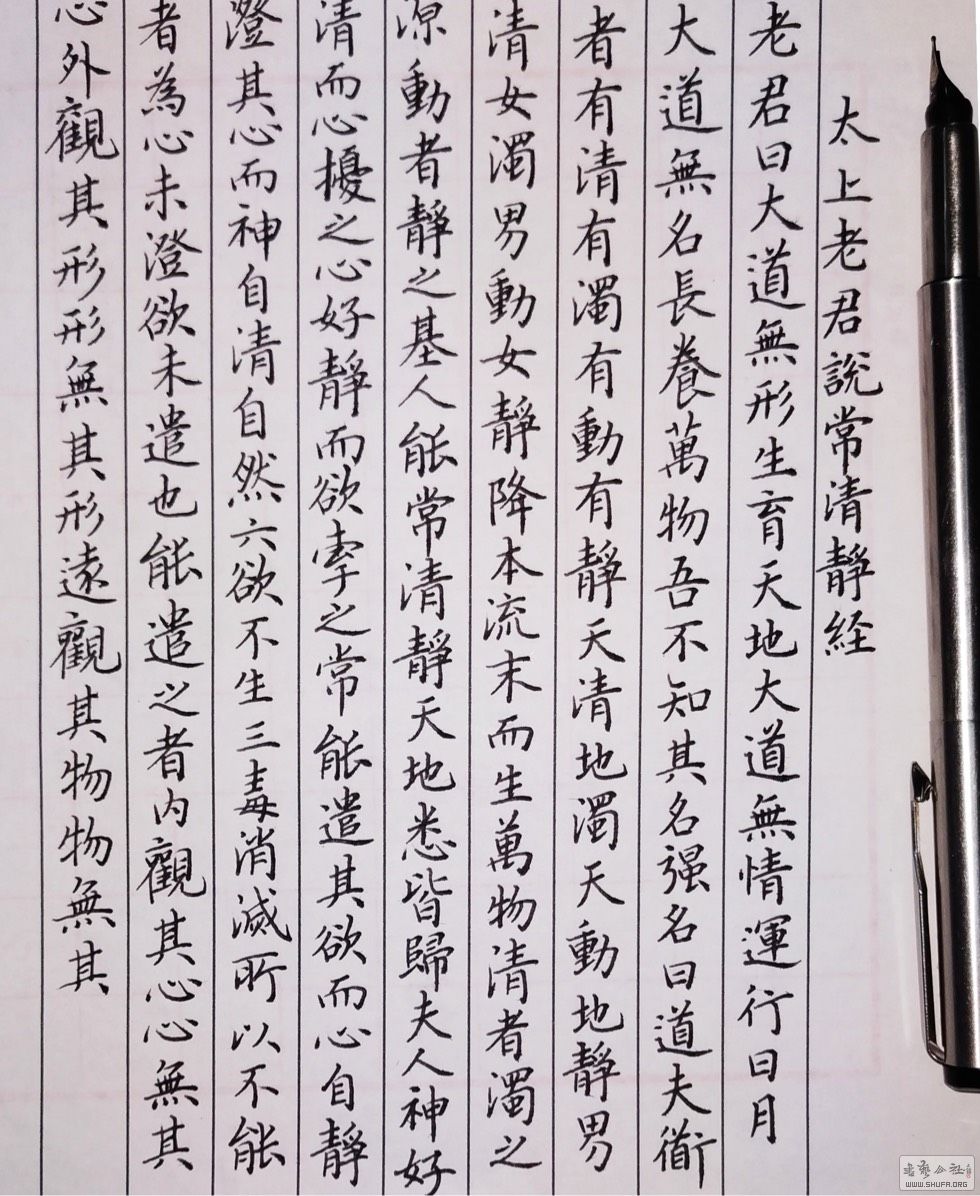 太上老君說常清靜経
老君曰大道無形生育天地大道無情運行日月
大道無名長養萬物吾不知其名强名曰道夫衜
者有清有濁有動有靜天清地濁天動地靜男
清女濁男動女靜降本流末而生萬物清者濁之
源動者靜之基人能常清靜天地悉皆歸夫人神好
清而心擾之心好靜而欲牽之常能遣其欲而心自靜
澄其心而神自清自然六欲不生三毒消滅所以不能
者為心未澄欲未遣也能遣之者內觀其心心無其
心外觀其形形無其形遠觀其物物無其
書藝公社
WWW.SHUFA.ORG